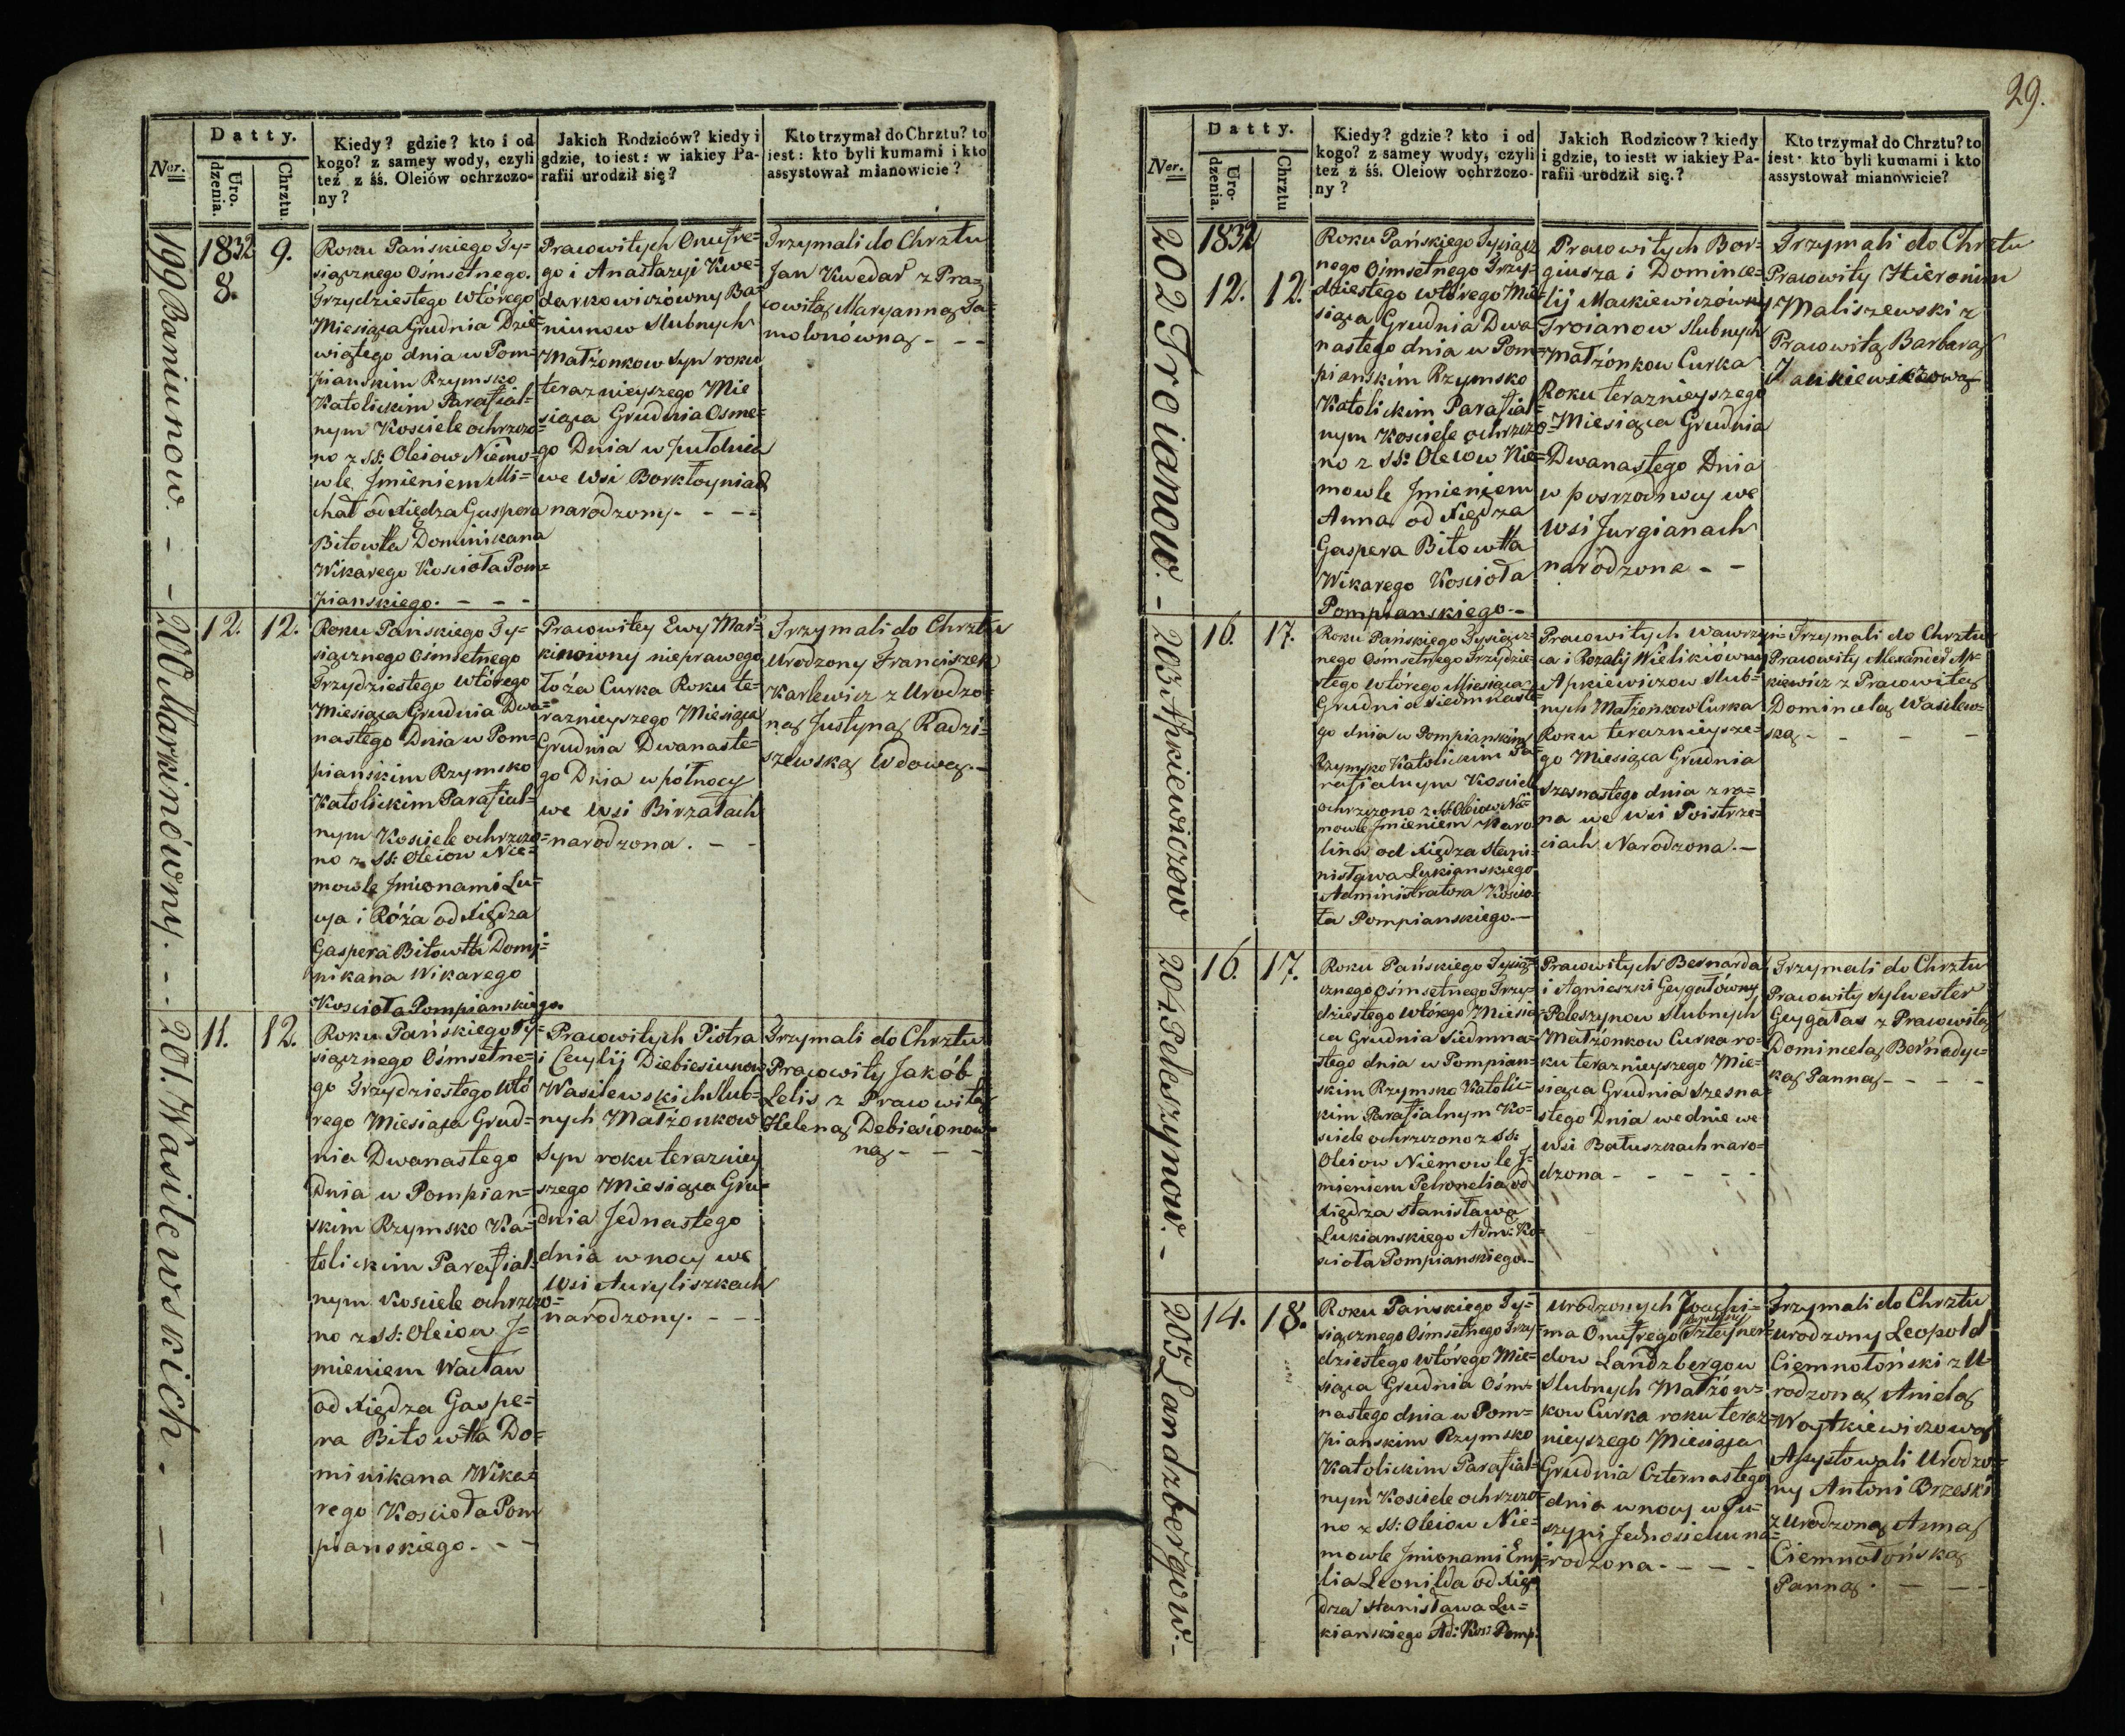 29.
Datty.
Ner.
Uro-
dzenia.
Chrztu.
Kiedy? gdzie? kto i od
kogo? z samey wody, czyli
też z śś. Oleiów ochrzczo-
ny?
Jakich Rodziców? kiedy i
gdzie, to iest: w iakiey Pa-
rafii urodził się?
Kto trzymał do Chrztu? to
iest: kto byli kumami i kto
assystował mianowicie?
199 Baniunow.
1832
8.
9.
Roku Pańskiego Ty=
siącznego Ośmsetnego.
Trzydziestego Wtórego
Miesiąca Grudnia Dzie=
wiątego dnia w Pom=
pianskim Rzymsko
Katolickim Parafial=
nym Kosciele ochrzczo=
no z SS: Oleiow Niemo=
wle Jmieniem Mi=
chał od Xiędza Gaspera
Bitowtta Dominikana
Wikarego Kosciola Pom=
pianskiego. - - -
Pracowitych Onufre=
go i Anastazyi Kwe=
darkowiczówny Ba=
niunow Slubnych
Małżonkow Syn roku
teraznieyszego Mie
siąca Grudnia Osme=
go Dnia w pułdnia
we Wsi Borkłoyniach
narodzony. - - -
Trzymali do Chrztu
Jan Kwedar z Pra=
cowitą Maryanną Ta=
molonówną. - - -
200 Markinówny.
12.
12.
Roku Pańskiego Ty=
siącznego Osmsetnego
Trzydziestego Wtórego
Miesiąca Grudnia Dwa=
nastego Dnia w Pom=
pianskim Rzymsko
Katolickim Parafial=
nym Kosciele ochrzczo=
no z SS: Oleiow Nie=
mowle Jmionami Lu=
cya i Róża od Xiędza
Gaspera Bitowtta Domi=
nikana Wikarego
Kosciola Pompianskiego.
Pracowitey Ewy Mar=
kinowny nieprawego
łoża Curka Roku te=
raznieyszego Miesiąca
Grudnia Dwanaste=
go Dnia w północy
we Wsi Birzałach
narodzona. - -
Trzymali do Chrztu
Urodzony Franciszek
Karlewicz z Urodzo=
ną Justyną Radzi=
szewską Wdową.-
201. Wasilewskich.
11.
12.
Roku Pańskiego Ty=
siącznego Ośmsetne=
go Trzydziestego Wtó
rego Miesiąca Grud=
nia Dwanastego
Dnia w Pompian=
skim Rzymsko Ka=
tolickim Parafial=
nym Kosciele ochrzczo=
no z SS: Oleiow J=
mieniem Wacław
od Xiędza Gaspe=
ra Bitowtta Do=
minikana Wika=
rego Kosciola Pom
pianskiego. - -
Pracowitych Piotra
i Cecylij Diebiesiunow
Wasilewskich Slub=
nych Małżonkow
Syn roku terazniey
szego Miesiąca Gru=
dnia Jednastego
dnia w nocy we
Wsi Auryliszkach
narodzony. - - -
Trzymali do Chrztu
Pracowity Jakób
Lelis z Pracowitą
Heleną Debiesionow=
ną - - -
Datty.
Ner.
Uro-
dzenia.
Chrztu
Kiedy? gdzie? kto i od
kogo? z samey wody, czyli
też z śś. Oleiow ochrzczo-
ny?
Jakich Rodzicow? kiedy
i gdzie, to iest: w iakiey Pa-
rafii urodził się.?
Kto trzymał do Chrztu? to
iest: kto byli kumami i kto
assystował mianowicie?
202 Troianow.
1832
12.
12.
Roku Pańskiego Tysiącz
nego Ośmsetnego Trzy=
dziestego wtórego Mie=
siąca Grudnia Dwa
nastego dnia w Pom=
pianskim Rzymsko
Katolickim Parafial=
nym Kosciele ochrzczo=
no z SS: Oleiow Nie=
mowle Jmieniem
Anna od Xiędza
Gaspera Bitowtta
Wikarego Kosciola
Pompianskiego.-
Pracowitych Bor=
giusza i Domince=
lij Mackiewiczówny
Troianow Slubnych
Małżónkow Curka
Roku teraznieyszego
Miesiąca Grudnia
Dwanastego Dnia
w posrzodnocy we
Wsi Jurgianach
narodzona - -
Trzymali do Chrztu
Pracowity Hieronim
Maliszewski z
Pracowitą Barbarą
Jankiewiczową
203. Apkiewiczow
16.
17.
Roku Pańskiego Tysiącz=
nego Ośmsetnego Trzydzie=
stego wtórego Miesiąca
Grudnia Siedmnaste
go dnia w Pompianskim
Rzymsko Katolickim Pa=
rafialnym Kosciele
ochrzczono z SS: Oleiow Nie=
mowle Jmieniem Karo=
lina od Xiędza Stani=
nisława Lukianskiego
Administratora Koscio=
ła Pompianskiego.-
Pracowitych Wawrzyń=
ca i Rozalij Wielikiówny
Apkiewiczow Slub=
nych Małżonkow Curka
Roku teraznieysze=
go Miesiąca Grudnia
szesnastego dnia z ra=
na we Wsi Poistrze=
ciach Narodzona.-
Trzymali do Chrztu
Pracowity Alexander Ap=
kiewicz z Pracowitą
Domincelą Wasilew=
ską - - - -
204. Peleszynow.
16.
17.
Roku Pańskiego Tysią=
cznego Ośmsetnego Trzy=
dziestego wtórego Miesią=
ca Grudnia Siedmna=
stego dnia w Pompian=
skim Rzymsko Katolic=
kim Parafialnym Ko=
sciele ochrzczono z SS:
Oleiow Niemowle J=
mieniem Petronelia od
Xiędza Stanisława
Lukianskiego Adm: Ko=
sciola Pompianskiego.-
Pracowitych Bernarda
i Agnieszki Geygałówny
Peleszynow Slubnych
Małżonkow Curka ro=
ku teraznieyszego Mie=
siąca Grudnia Szesna=
stego Dnia we dnie we
Wsi Bałuszkach naro=
dzona - - - - -
Trzymali do Chrztu
Pracowity Sylwester
Geygałas z Pracowitą
Domincelą Bernadyc=
ką Panną - - - -
205 Landzbergow.-
14.
18.
Roku Pańskiego Ty=
siącznego Ośmsetnego Trzy=
dziestego wtórego Mie=
siąca Grudnia Ośm=
nastego dnia w Pom=
pianskim Rzymsko
Katolickim Parafial=
nym Kosciele ochrzczo=
no z SS: Oleiow Nie=
mowle Jmionami Emi=
lia Leonilda od Xię=
dza Stanisława Lu=
kianskiego Ad: Kos: Pomp:
Urodzonych Joachi=
ma Onufrego Szteyner=
dow Landzbergow
Slubnych Małżón=
kow Curka roku teraz=
nieyszego Miesiąca
Grudnia Czternastego
dnia w nocy w Pu=
szyni Jednosielu na=
rodzona - - - -
Trzymali do Chrztu
urodzony Leopold
Ciemnołoński z U=
rodzoną Anielą
Woytkiewiczową
Assystowali Urodzo=
ny Antoni Brzeski
z Urodzoną Anną
Ciemnołońską
Panną. - - -